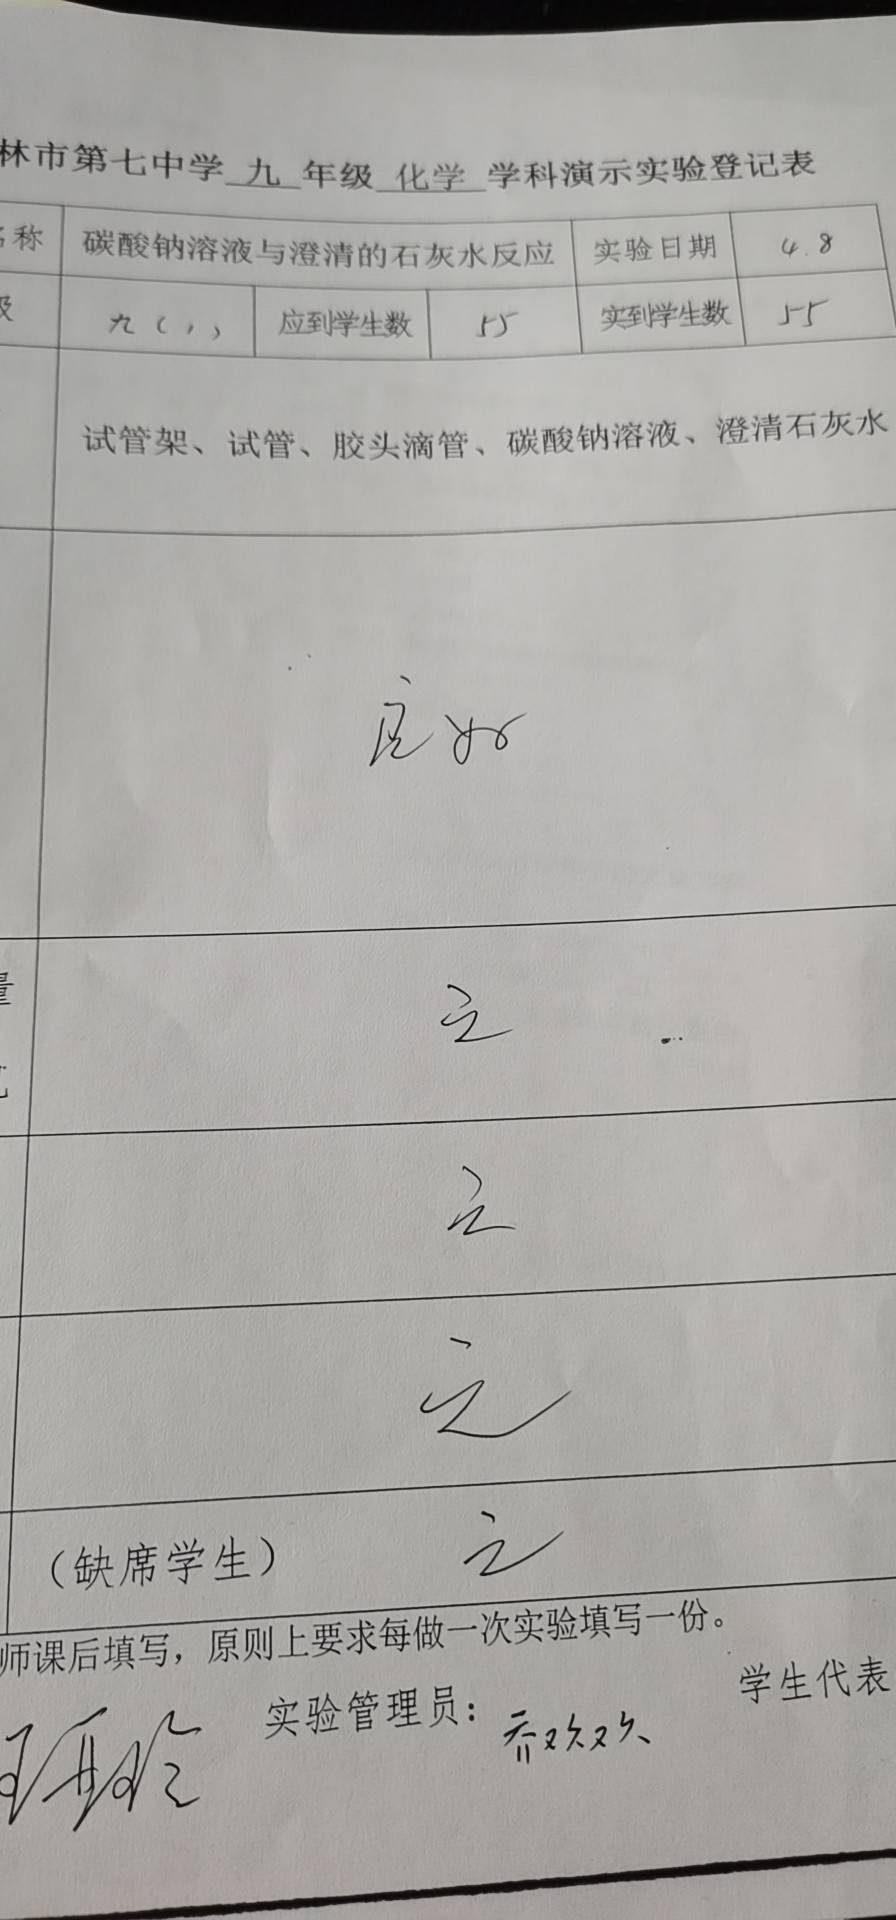 林市第七中学 九 年级 化学 学科演示实验登记表
名称 碳酸钠溶液与澄清的石灰水反应 实验日期 4.8
级 九(1) 应到学生数 55 实到学生数 55
试管架、试管、胶头滴管、碳酸钠溶液、澄清石灰水
良好
量
无
无
无
(缺席学生) 无
师课后填写，原则上要求每做一次实验填写一份。
实验管理员：乔欢欢 学生代表